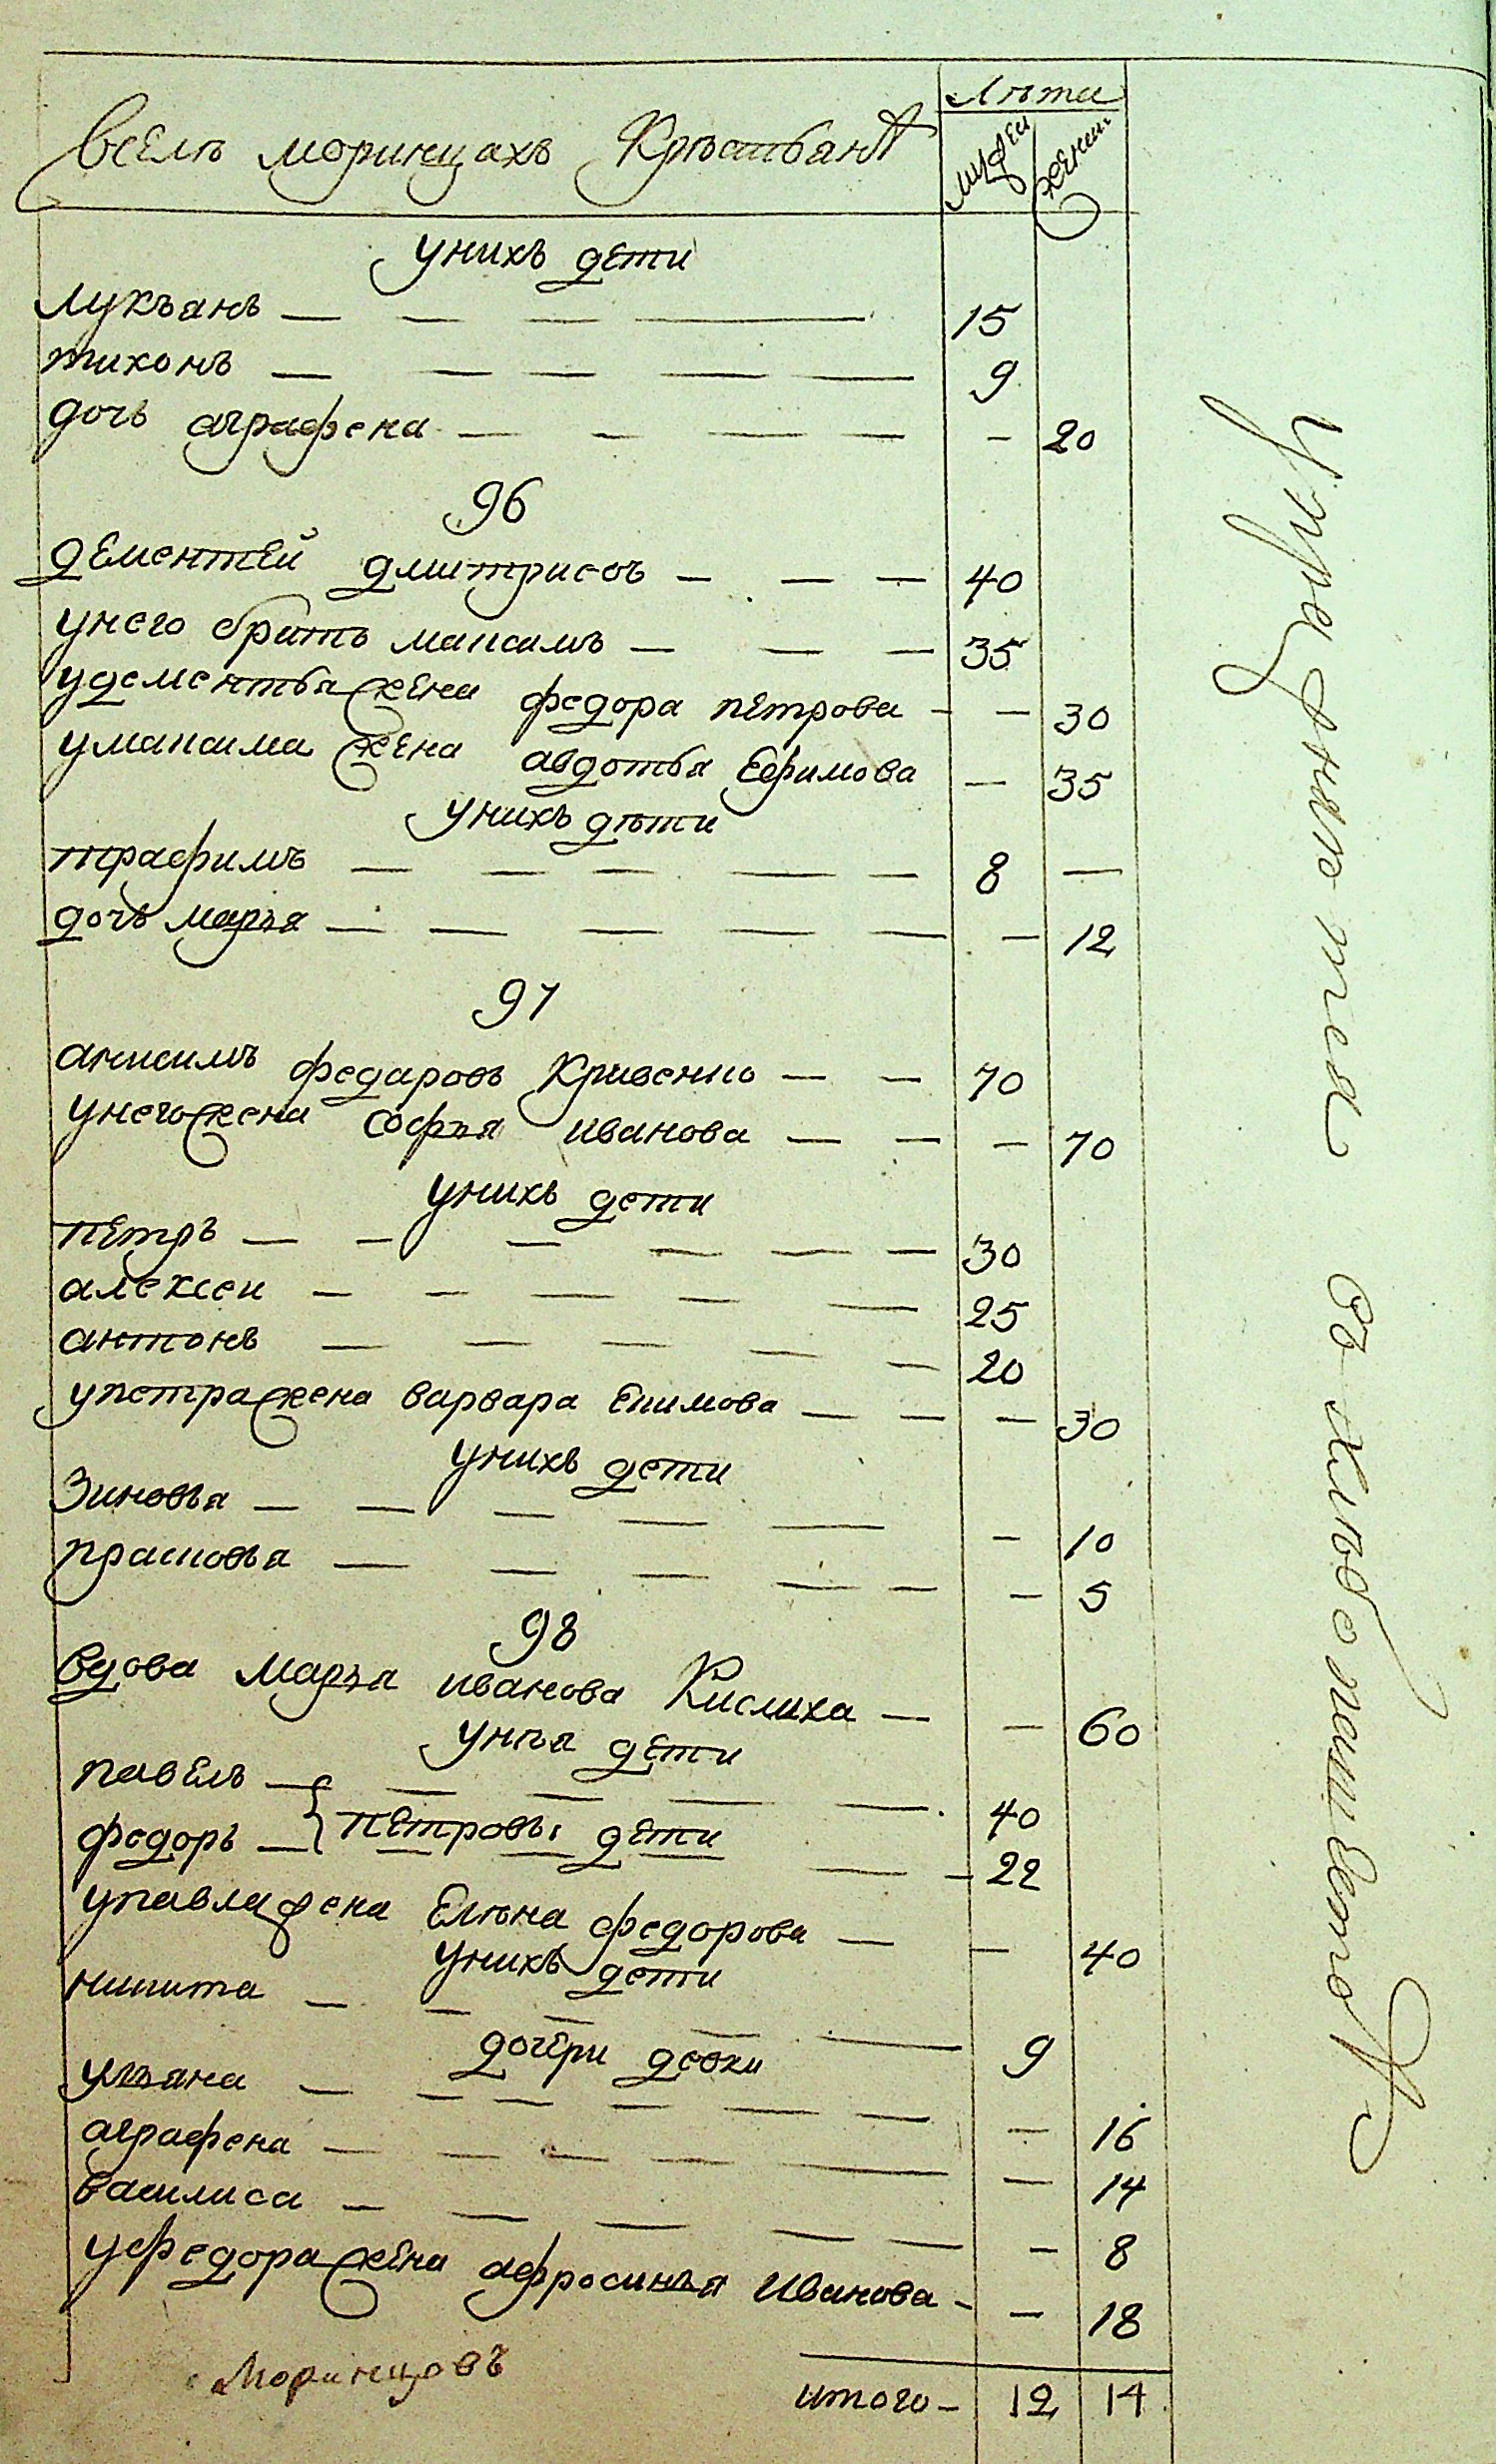 Лѣта
Вселѣ моринцахъ Крѣстьянъ
мужеи женщ
унихъ дети
лукъянъ — — — — 15
тихонъ — — — — — 9
дочь аграфена — — — — — 20
96
дементей дмитриевъ — — — 40
унего братъ максимъ — — — 35
удементья жена федора петрова — — 30
умаксима жена авдотья Ефимова — 35
унихъ дѣти
трафимъ — — — — — 8 —
дочь марья — — — — — — 12
97
анисимъ федаровъ Кривенко — — 70
унего жена софья иванова — — — 70
унихъ дети
петръ — — — — — — 30
алексеи — — — — — 25
антонъ — — — — — 20
упетра жена варвара Екимова — — — 30
унихъ дети
Зиновья — — — — — — 10
прасковья — — — — — — 5
98
Вдова марья иванова Кислиха — — 60
унѣя дети
павелъ — — — — — 40
федоръ — } петровы дети — — — — — 22
упавла жена Елѣна федорова — — 40
унихъ дети
никита — — — — — 9
дочери девки
ульяна — — — — — — — 16
аграфена — — — — — — — 14
василиса — — — — — — 8
уфедора жена афросинья Иванова — — 18
Моринцовъ
итого — 12 14
упражняются въ хлѣбопашествѣ